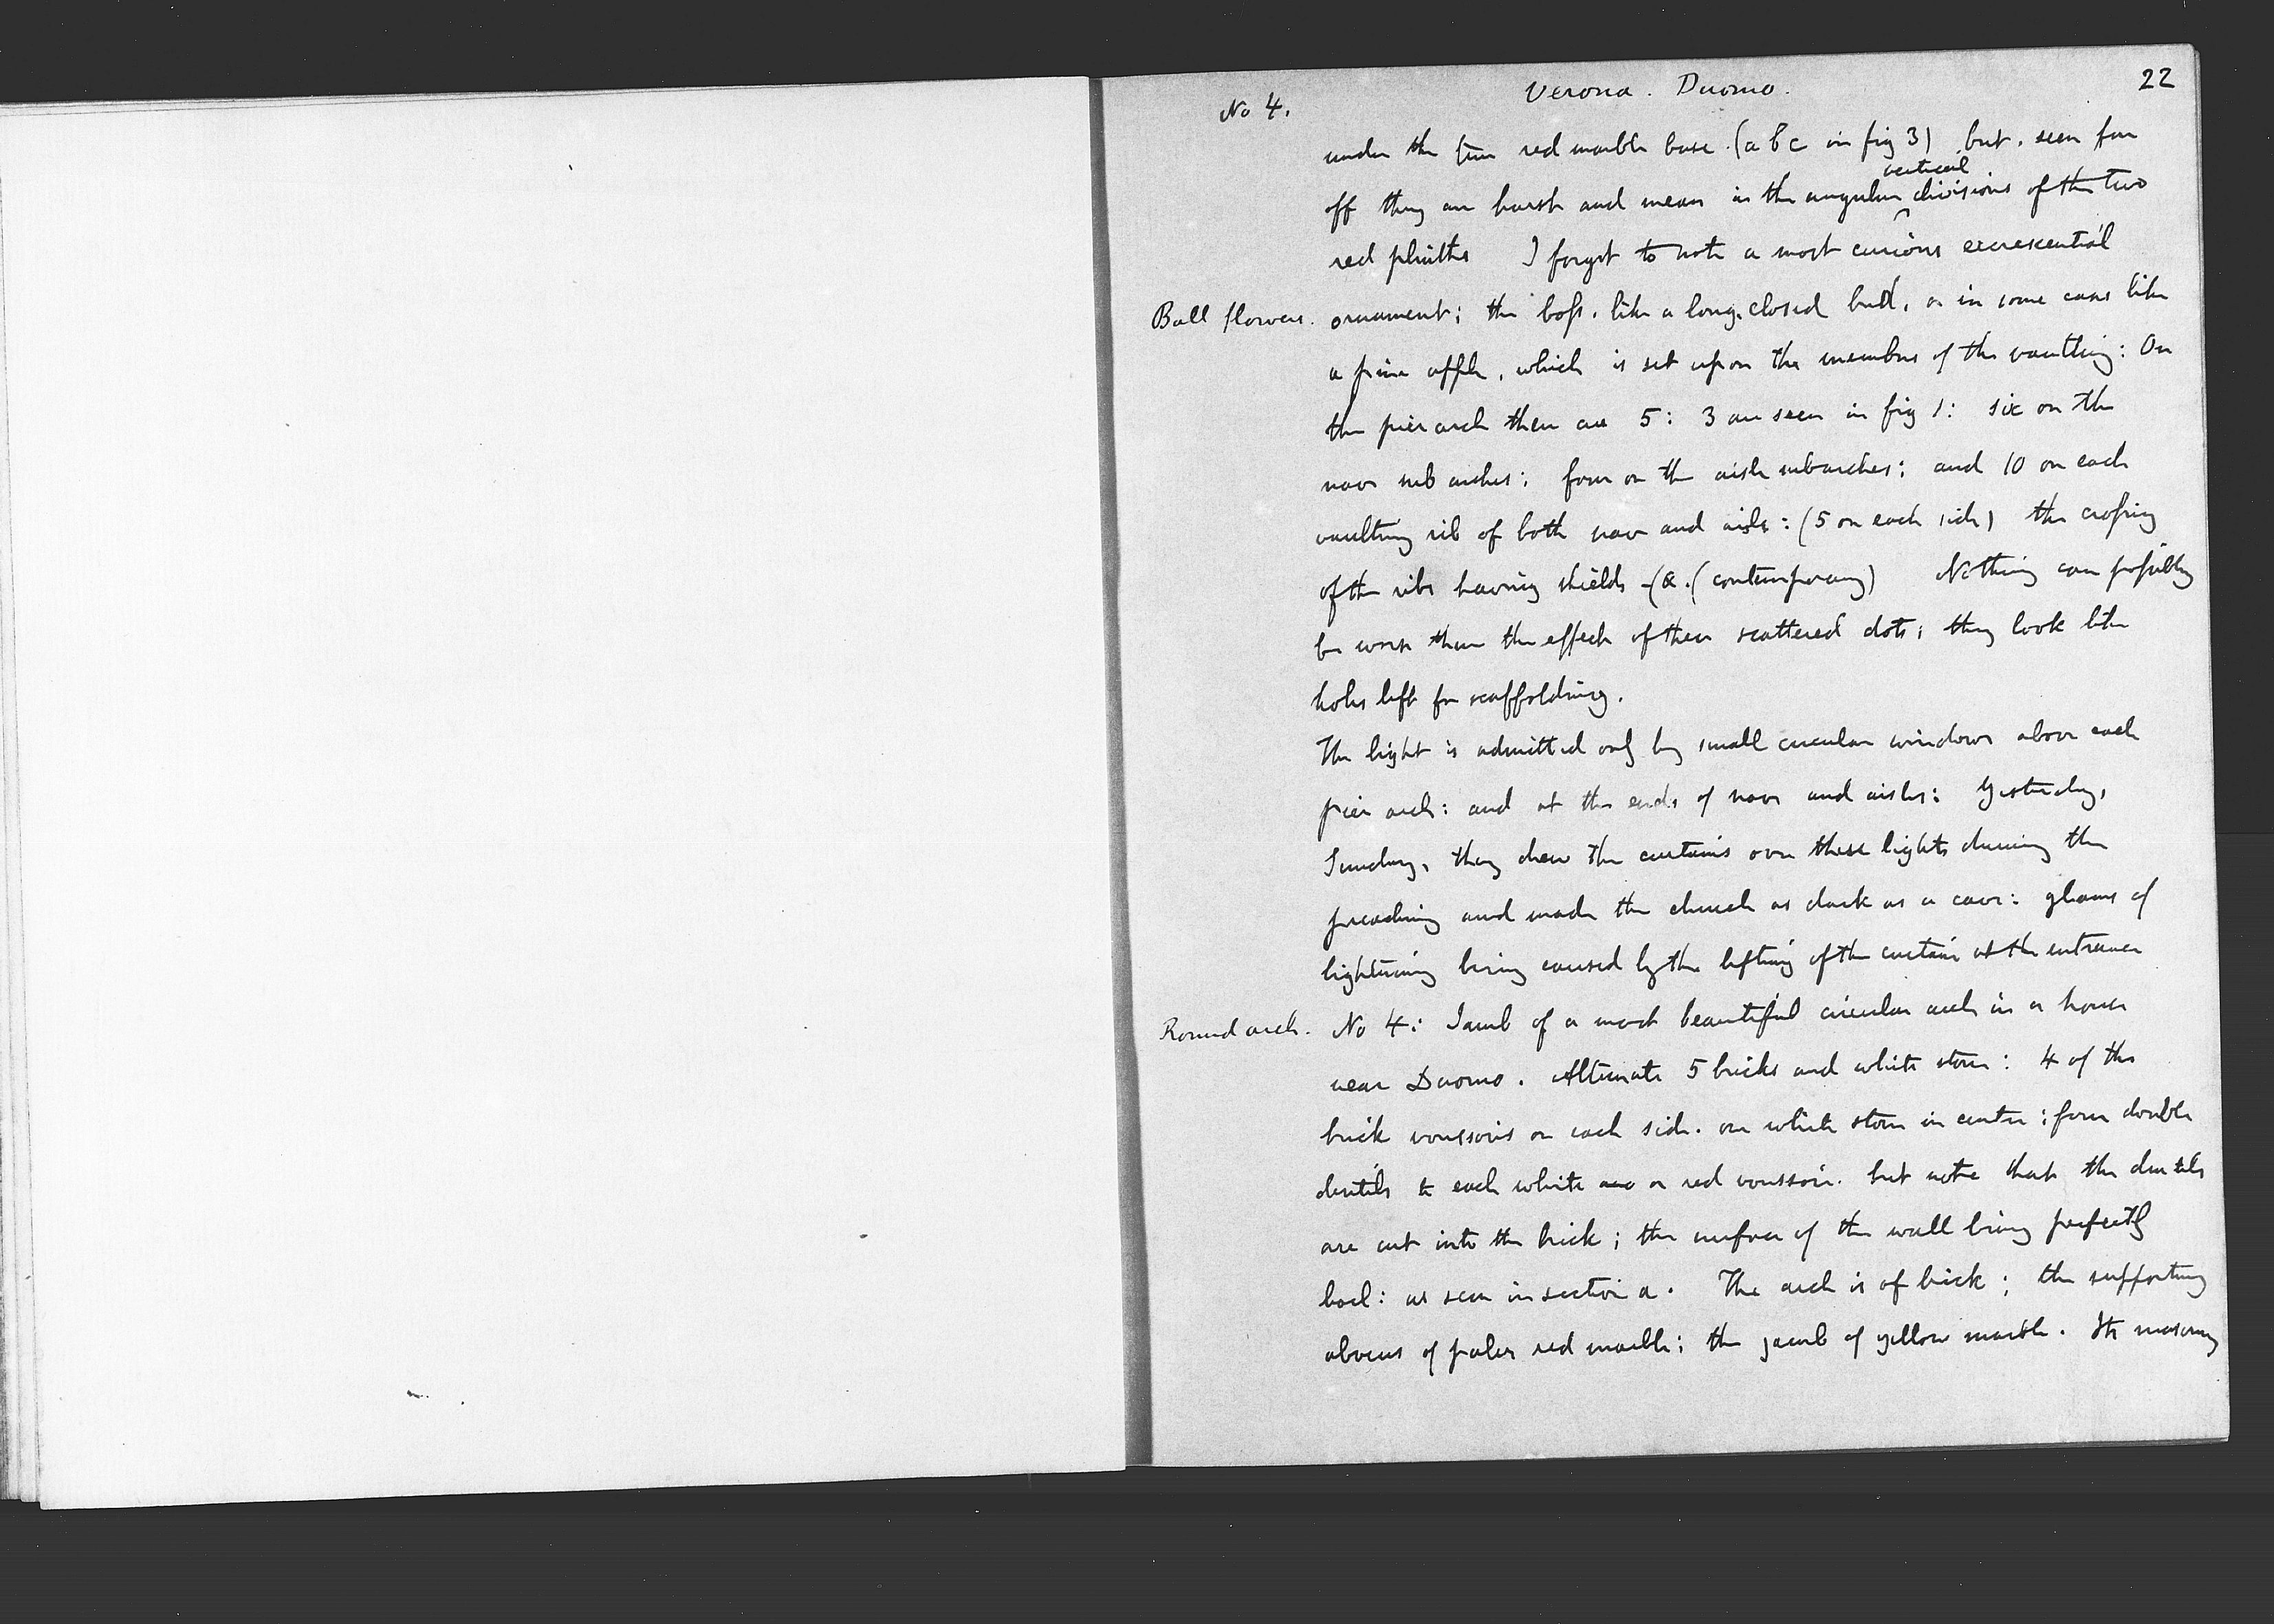 Verona. Duomo.
22
No 4.
under the two red marble base. (a b c in fig 3) but. seen far
off they are harsh and mean in the angular vertical divisions of the two
red plinths I forgot to note a most curious excrescential
Ball flowers. ornament; the boss. like a long closed bud, or in some cases like
a pine apple, which is set upon the members of the vaulting: On
the pier arch there are 5: 3 are seen in fig 1: six on the
nave sub arches; four on the aisle subarches; and 10 on each
vaulting rib of both nave and aisle: (5 on each side) the crossing
of the ribs having shields (&. (contemporary) Nothing can possibly
be worse than the effect of these scattered dots; they look like
holes left for scaffolding.
The light is admitted only by small circular windows above each
pier arch: and at the ends of nave and aisles: Yesterday,
Sunday, they drew the curtains over these lights during the
preaching and made the church as dark as a cave: gleams of
lightning being caused by the lifting of the curtain at the entrance
Round arch. No 4: Jamb of a most beautiful circular arch in a house
near Duomo. Alternate 5 bricks and white stone: 4 of the
brick voussoirs on each side. one white stone in centre; four double
dentils to each white or red voussoir. but note that the dentils
are cut into the brick; the surface of the wall being perfectly
as seen in section a. The arch is of brick; the supporting
abacus of paler red marble; the jamb of yellow marble. Its masonry